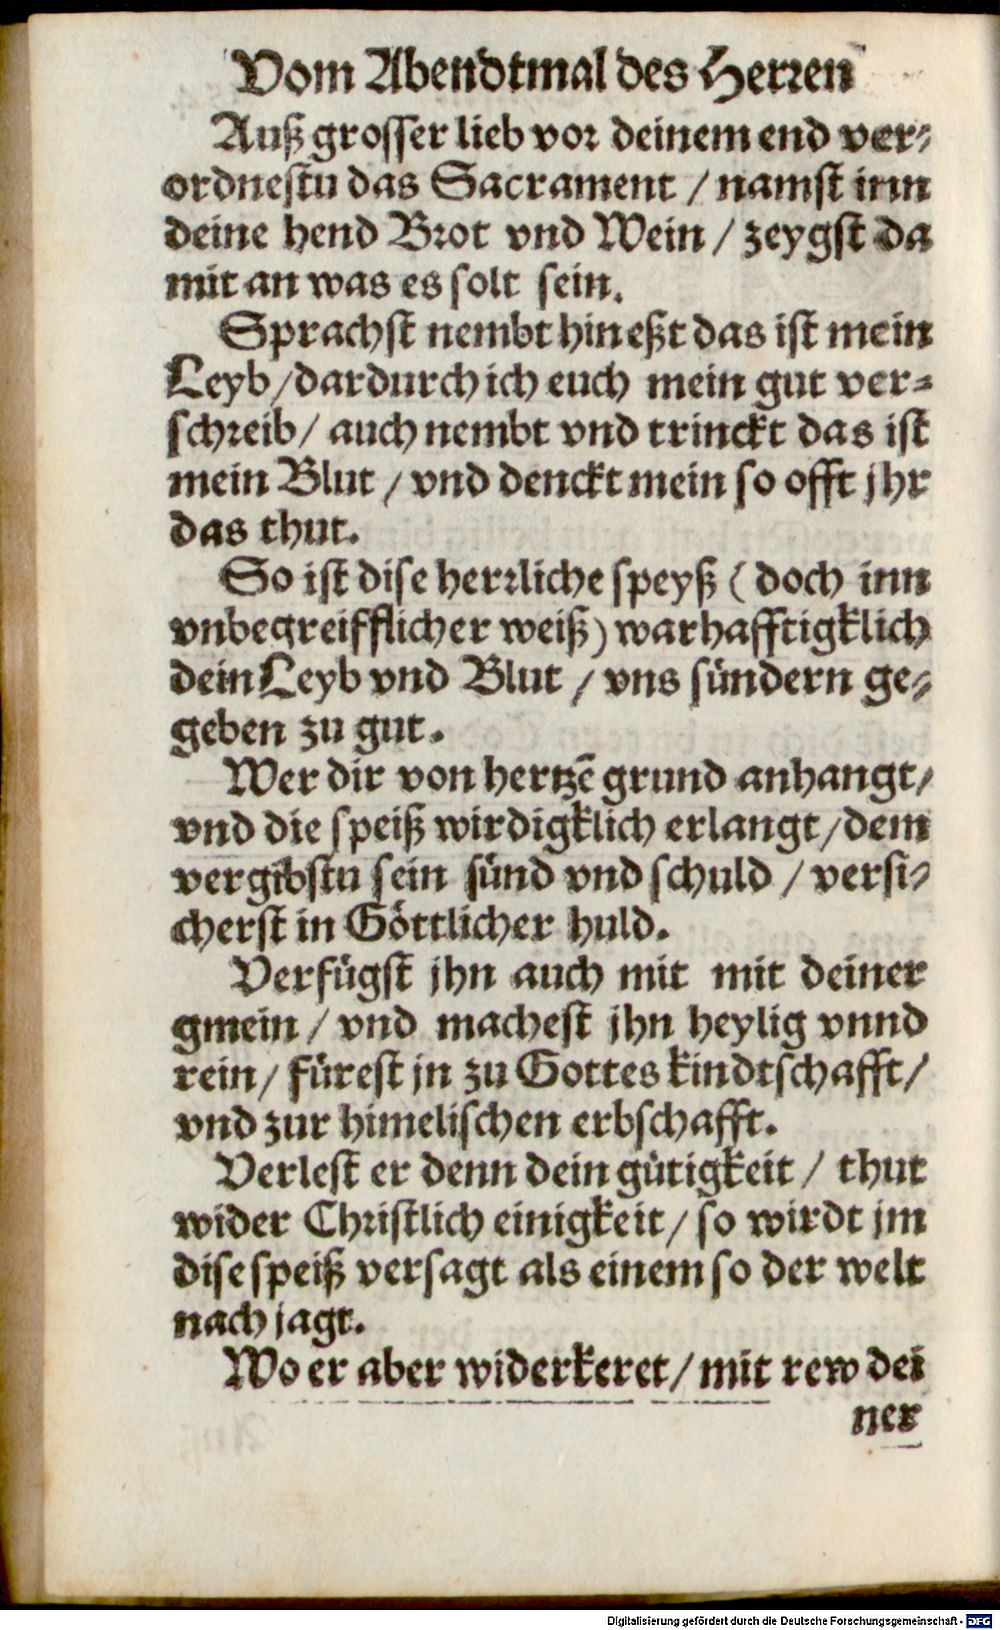 Vom Abendtmal des Herren
Auß grosser lieb vor deinem end ver-
ordnestu das Sacrament / namst inn
deine hend Brot vnd Wein / zeygst da
mit an was es solt sein.
Sprachst nembt hin eßt das ist mein
Leyb / dardurch ich euch mein gut ver-
schreib / auch nembt vnd trinckt das ist
mein Blut / vnd denckt mein so offt jhr
das thut.
So ist dise herrliche speyß (doch inn
vnbegreifflicher weiß) warhafftigklich
dein Leyb vnd Blut / vns sündern ge-
geben zu gut.
Wer dir von hertzē grund anhangt /
vnd die speiß wirdigklich erlangt / dem
vergibstu sein sünd vnd schuld / versi-
cherst in Göttlicher huld.
Verfügst jhn auch mit mit deiner
gmein / vnd machest jhn heylig vnnd
rein / fürest jn zu Gottes kindtschafft /
vnd zur himelischen erbschafft.
Verlest er denn dein gütigkeit / thut
wider Christlich einigkeit / so wirdt jm
dise speiß versagt als einem so der welt
nach jagt.
Wo er aber widerkeret / mit rew dei
ner
Digitalisierung gefördert durch die Deutsche Forschungsgemeinschaft - DFG